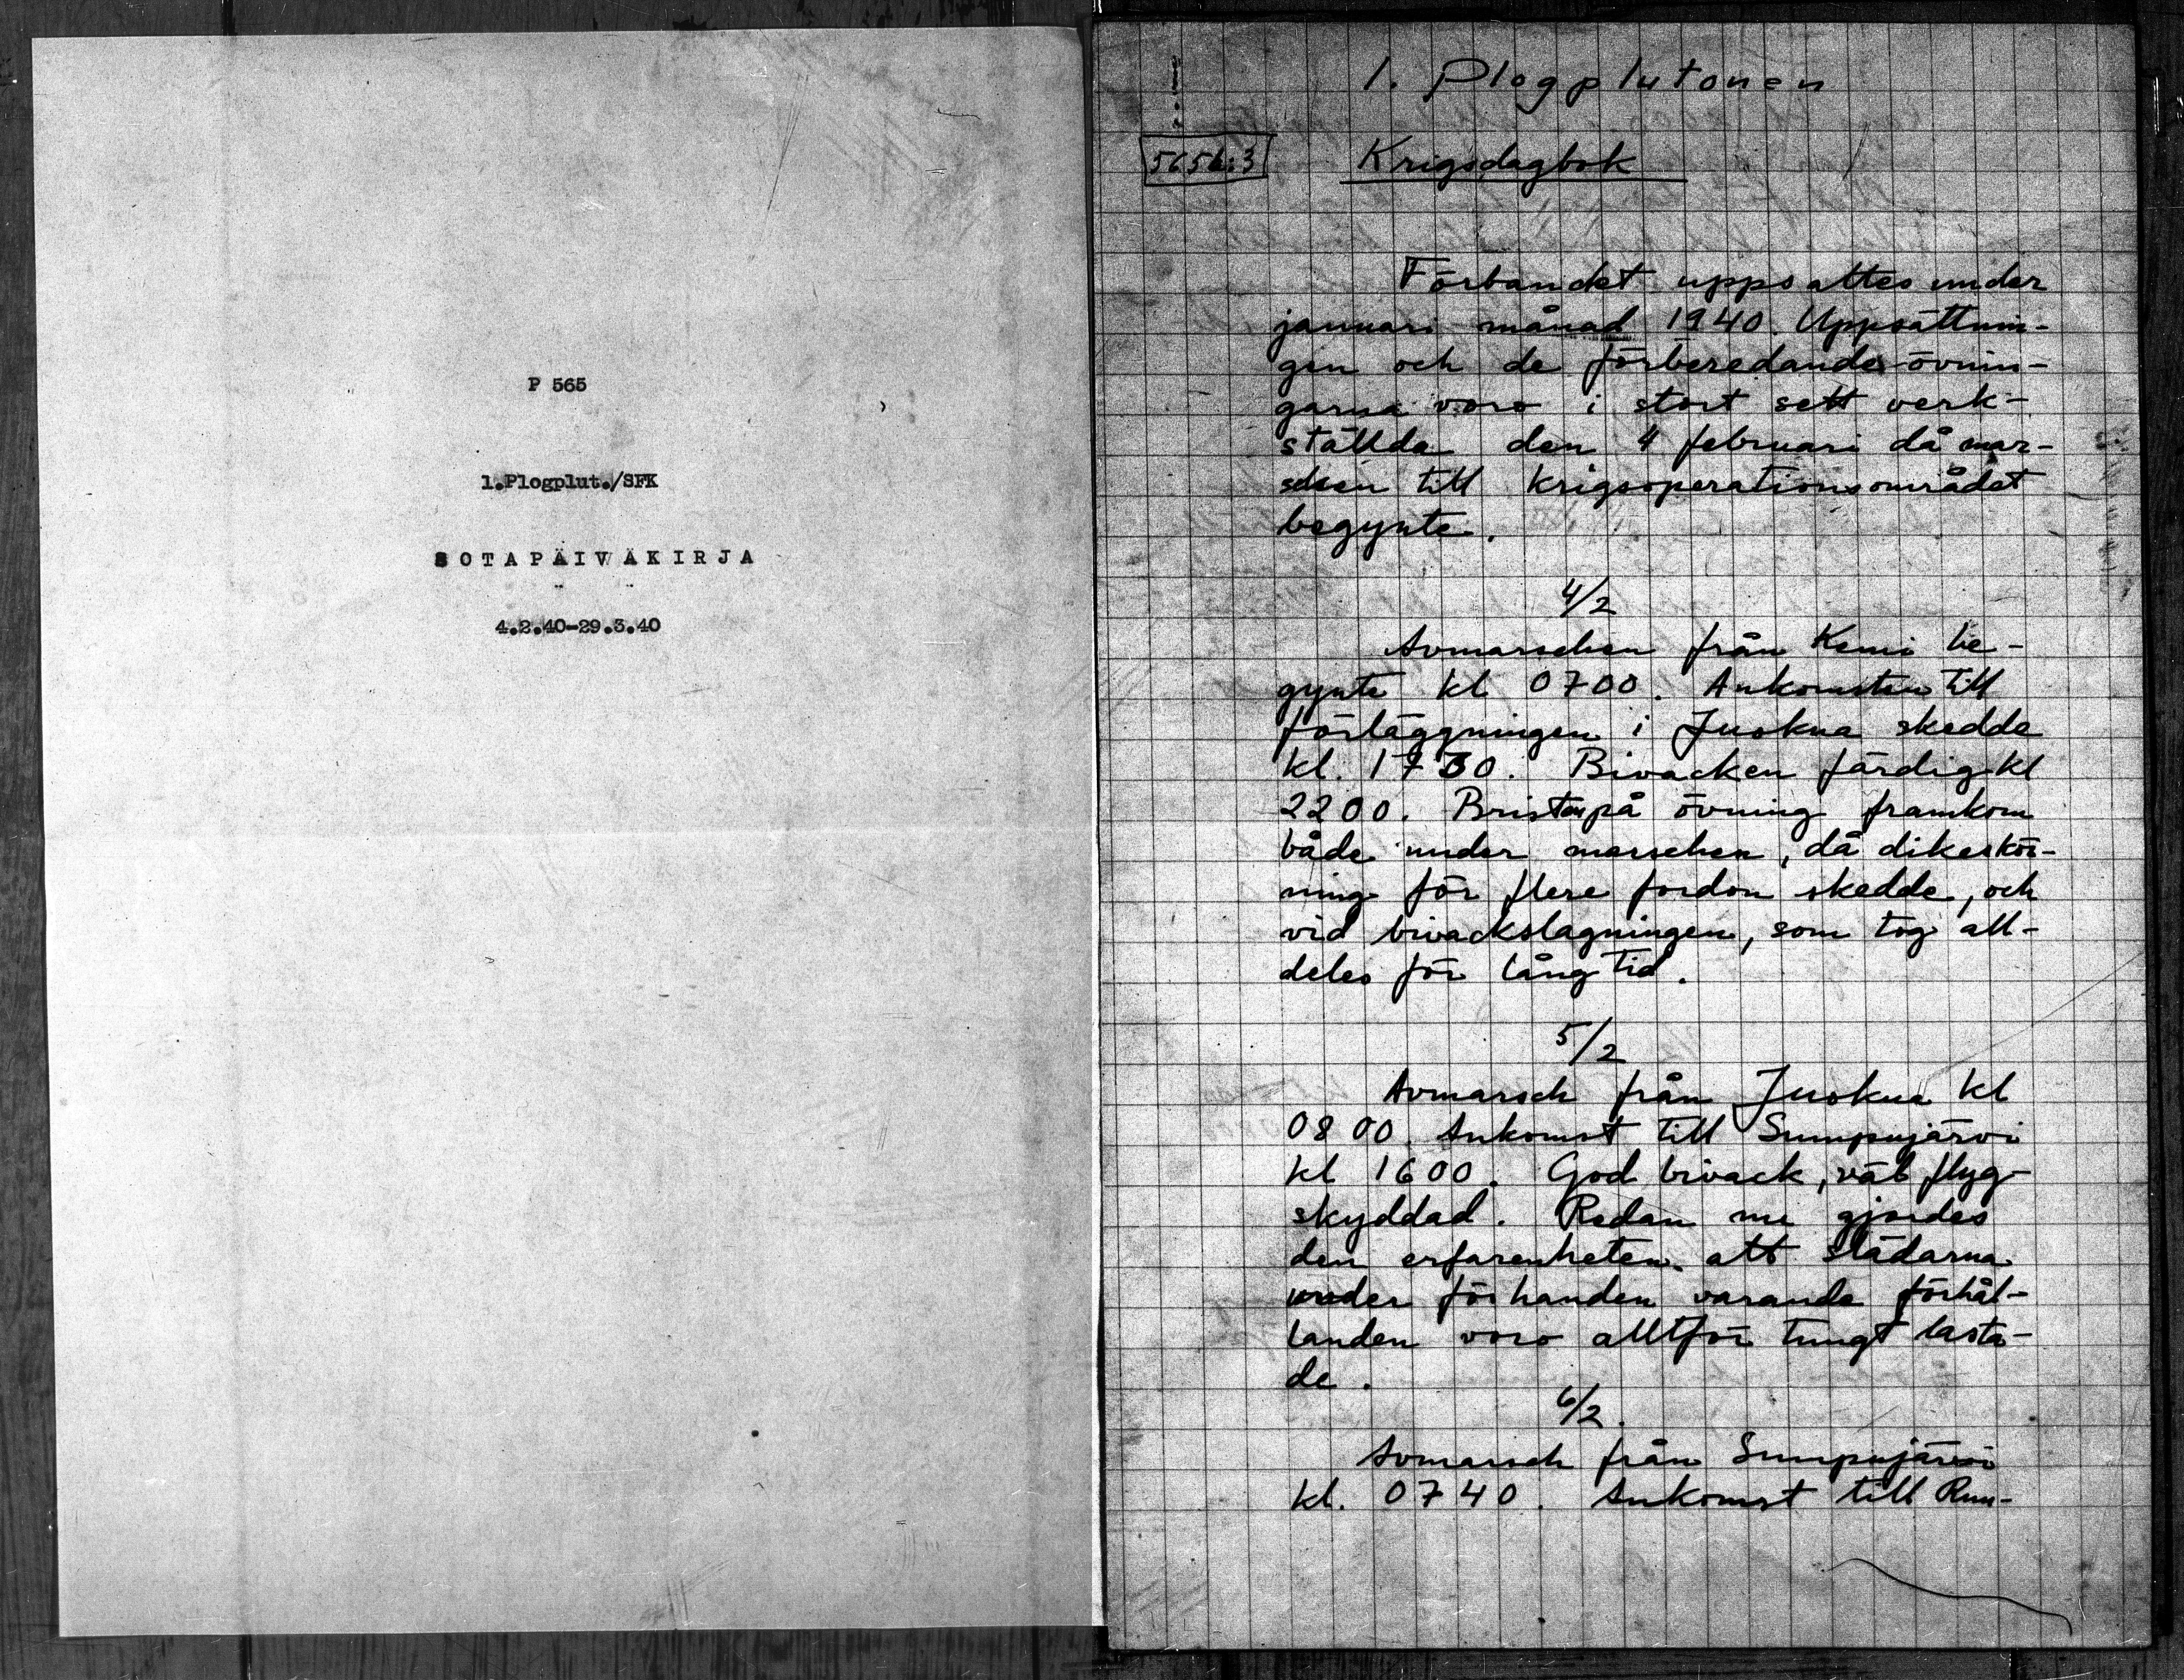 P 565
1.Plogplut./SFK
SOTAPÄIVÄKIRJA
4.2.40-29.3.40
1. Plogplutonen
5656:3
Krigsdagbok
Förbandet uppsattes under
januari månad 1940. Uppsättnin-
gen och de förberedande övnin-
garna voro i stort sett verk-
ställda den 4 februari då mar-
schen till krigsoperationsområdet
begynte.
4/2
Avmarschen från Kemi be-
gynte kl 0700. Ankomsten till
förläggningen i Juokua skedde
kl. 1730. Bivacken färdig kl
2200. Brist på övning framkom
både under marschen, då dikeskör-
ning för flere fordon skedde, och
vid bivackslagningen, som tog all-
deles för lång tid.
5/2
Avmarsch från Juokua kl
0800. Ankomst till Sumpujärvi
kl 1600. God bivack, väl flyg-
skyddad. Redan nu gjordes
den erfarenheten att slädarna
under förhanden varande förhål-
landen voro alltför tungt lasta-
de.
6/2.
Avmarsch från Sumpujärvi
kl. 0740. Ankomst till Ruu-